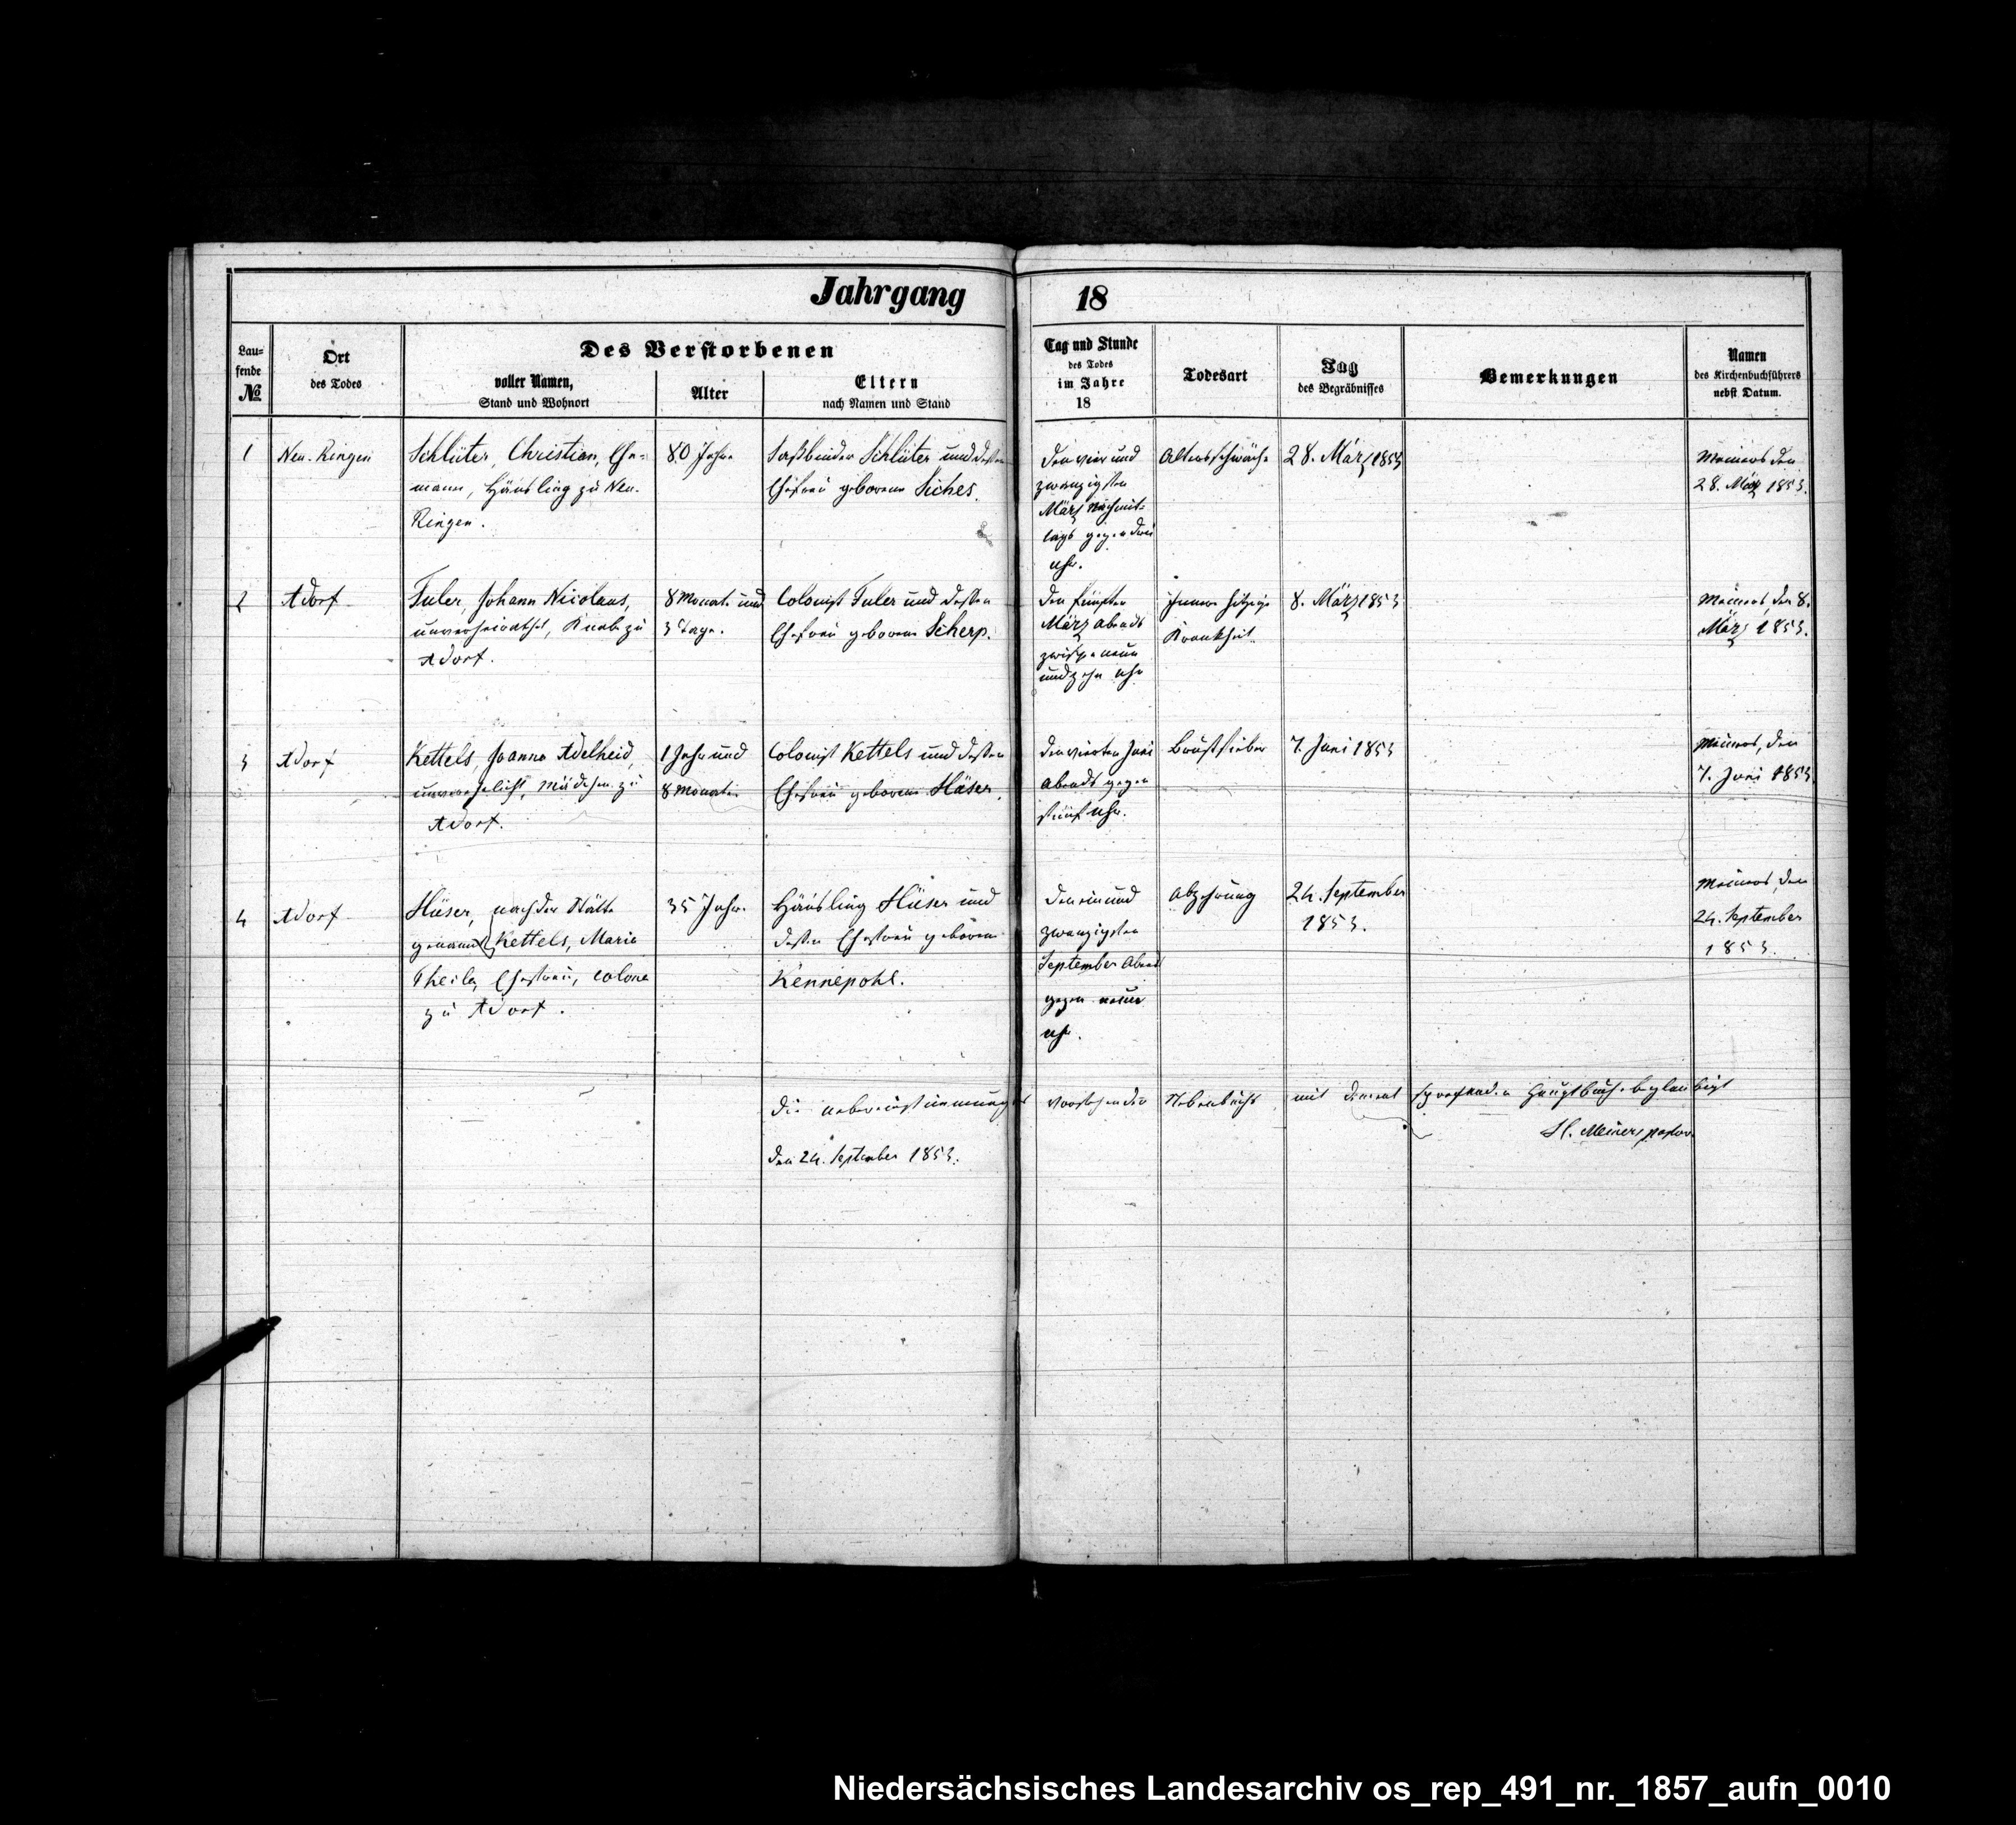 Jahrgang 18
Lau-
fende
№
Ort
des Todes
Des Verstorbenen
voller Namen,
Stand und Wohnort
Alter
Eltern
nach Namen und Stand
Tag und Stunde
des Todes
im Jahre
18
Todesart
Tag
des Begräbnisses
Bemerkungen
Namen
des Kirchenbuchführers
nebst Datum.
1
Neu-Ringen
Schlüter, Christian, Ehe-
mann, Häusling zu Neu-
Ringen.
80 Jahre
Faßbinder Schlüter und dessen
Ehefrau geborene Siches.
Den vier und
zwanzigsten
März Nachmit-
tags gegen drei
Uhr.
Altersschwäche
28. März 1853
Meiners den
28. März 1853.
2
Adorf
Tuler, Johann Nicolaus,
unverheirathet, Knabe zu
Adorf.
8 Monate und
3 Tage.
Colonist Tuler und dessen
Ehefrau geborene Scherp.
Den fünften
März Abends
zwischen neun
und zehn Uhr
Innere hitzige
Krankheit.
8. März 1853
Meiners, den 8.
März 1853.
3
Adorf
Kettels, Joanna Adelheid,
unverehelicht, Mädchen zu
Adorf.
1 Jahr und
8 Monate.
Colonist Kettels und dessen
Ehefrau geborene Hüser.
Den vierten Juni
Abends gegen
fünf Uhr.
Brustfieber
7. Juni 1853
Meiners, den
7. Juni 1853.
4
Adorf
Hüser, nach der Stätte
genannt Kettels, Maria
Theila, Ehefrau, Colona
zu Adorf.
35 Jahre
Häusling Hüser und
dessen Ehefrau geborene
Kennepohl.
Den ein und
zwanzigsten
September Abends
gegen neun
Uhr.
Abzehrung
24. September
1853.
Meiners, den
24. September
1853.
Die Uebereinstimmung des vorstehenden Nebenbuchs mit dem entsprechenden Hauptbuche beglaubigt
H. Meiners pastor.
den 24. September 1853.
Niedersächsisches Landesarchiv os_rep_491_nr._1857_aufn_0010